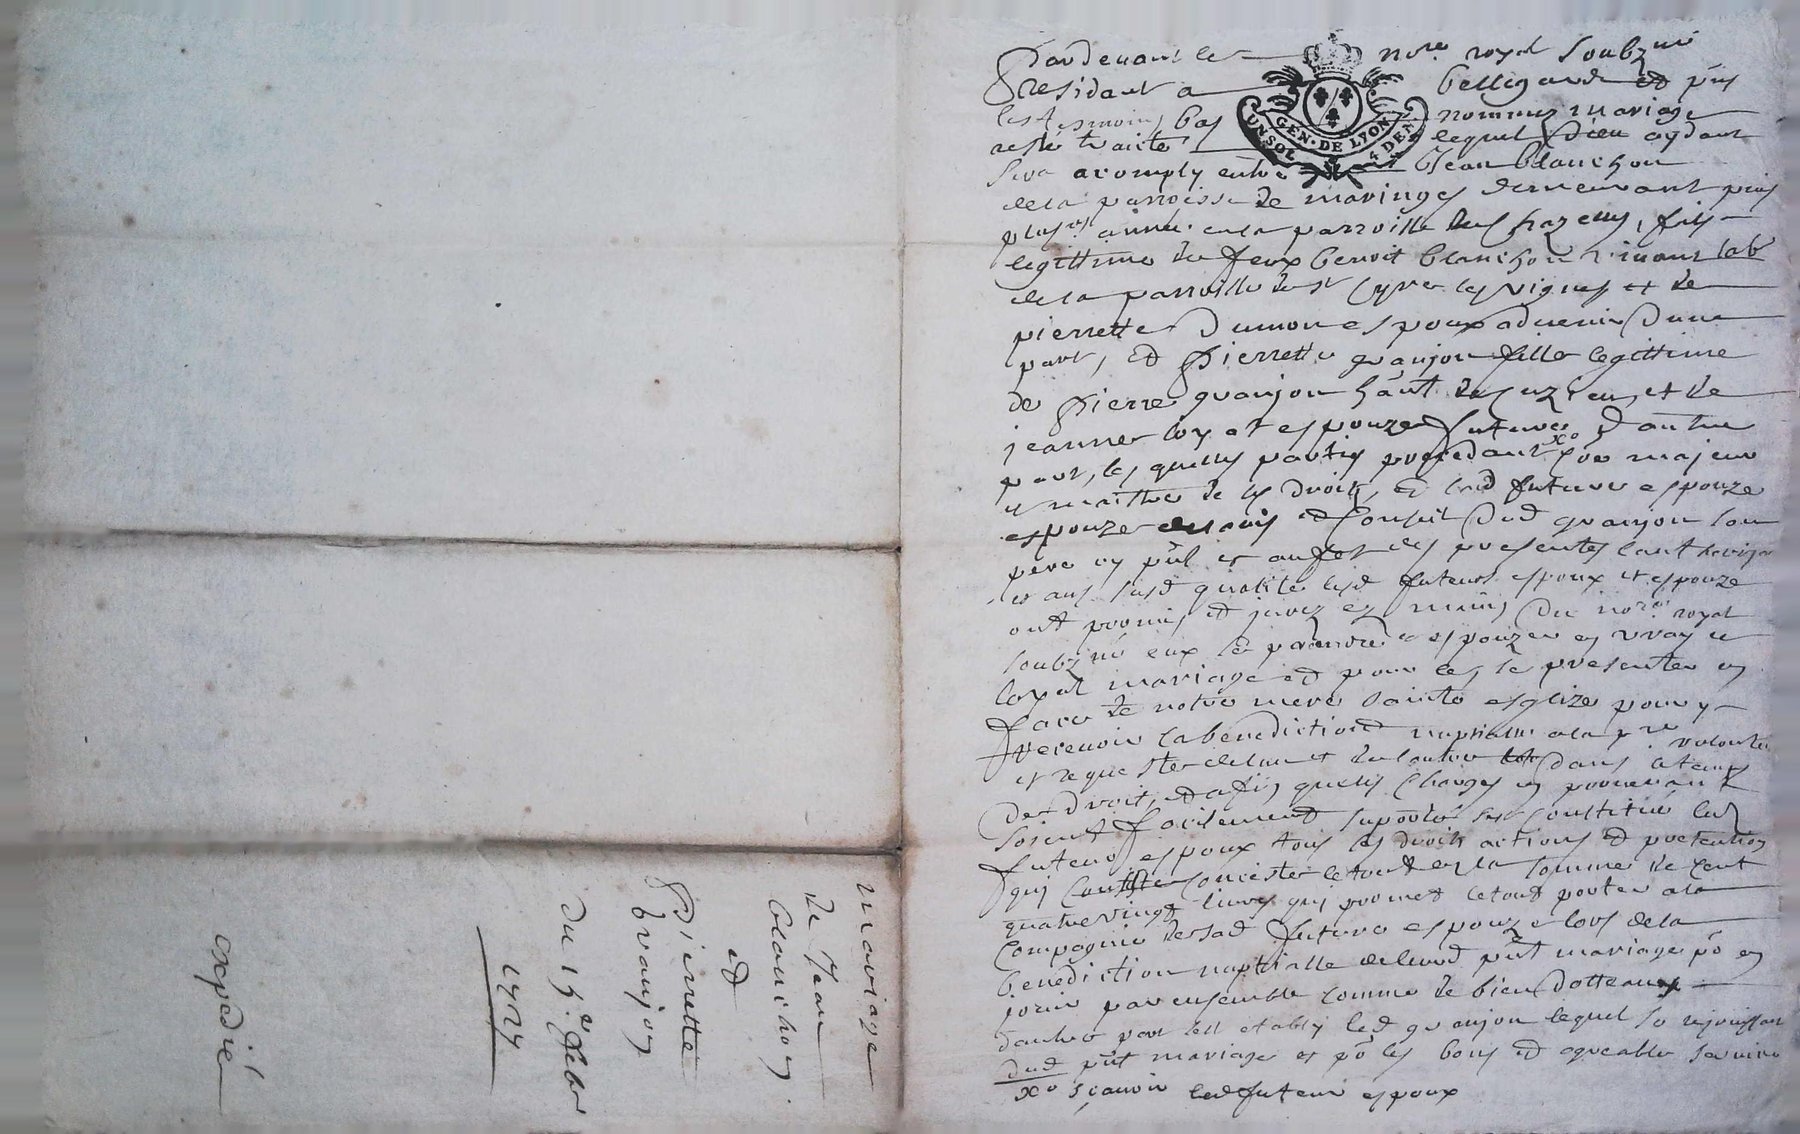 Pardevant le nore. royal soubzné
Residant a bellegarde et pñs
les tesmoins bas nommez mariage
reste traitté lequel Dieu aydant
sera acomply entre Jean blanchon
de la parroisse de maringes demeurant puis
plusrs année en la parroisse de chazelles, fils
legittime de feux benoit blanchon vivant labr
de la parroisse de st Cyre les vignes et de
pierrette Dumon espoux advenir Dune
part, et Pierrette granjon fille legittime
de Pierre granjon hãnt de Cuzieu, et de
jeanne espouze future d'autre
part, les quelles partys procedant xo majeur
et maistre de ses Droits, et lad future espouze
espouze de l'avis et Conseil Dud granjon son
pere cy pñt et auffet des presentes l'authorisant
et aus susd qualité lesd futeurs espoux et espouze
ont promis et jurez es mains Du nore royal
soubzné eux se prendre et espouzer en vray et
loyal mariage et pour ce, se presenter en
face de notre mere sainte esglize pour y
recevoir la benediction nuptialle a la pre volonté
et requeste de l'un et de l'autre dans le temps
De droit, et afin que les charges en provenant
soient facilement suportés sest constitué led
futeur espoux tous ses droits actions et pretention
qui consister le tout en la somme de cent
quatre vingt livres qui promet le tout porter a la
Compagnie de sad future espouze lors de la
benediction nuptialle de leurd pñt mariage po en
jouir par ensemble comme de bien Dotteaux
dautre part sest etably led granjon lequel se rejouissant
dud pñt mariage et po les bons et agreable service
xo sçavoir led futeur espoux
mariage
de Jean
blanchon
et
Pierrette
granjon
Du 15e febr
1727
expedié
GEN. DE LYON
UN SOL 4 DEN